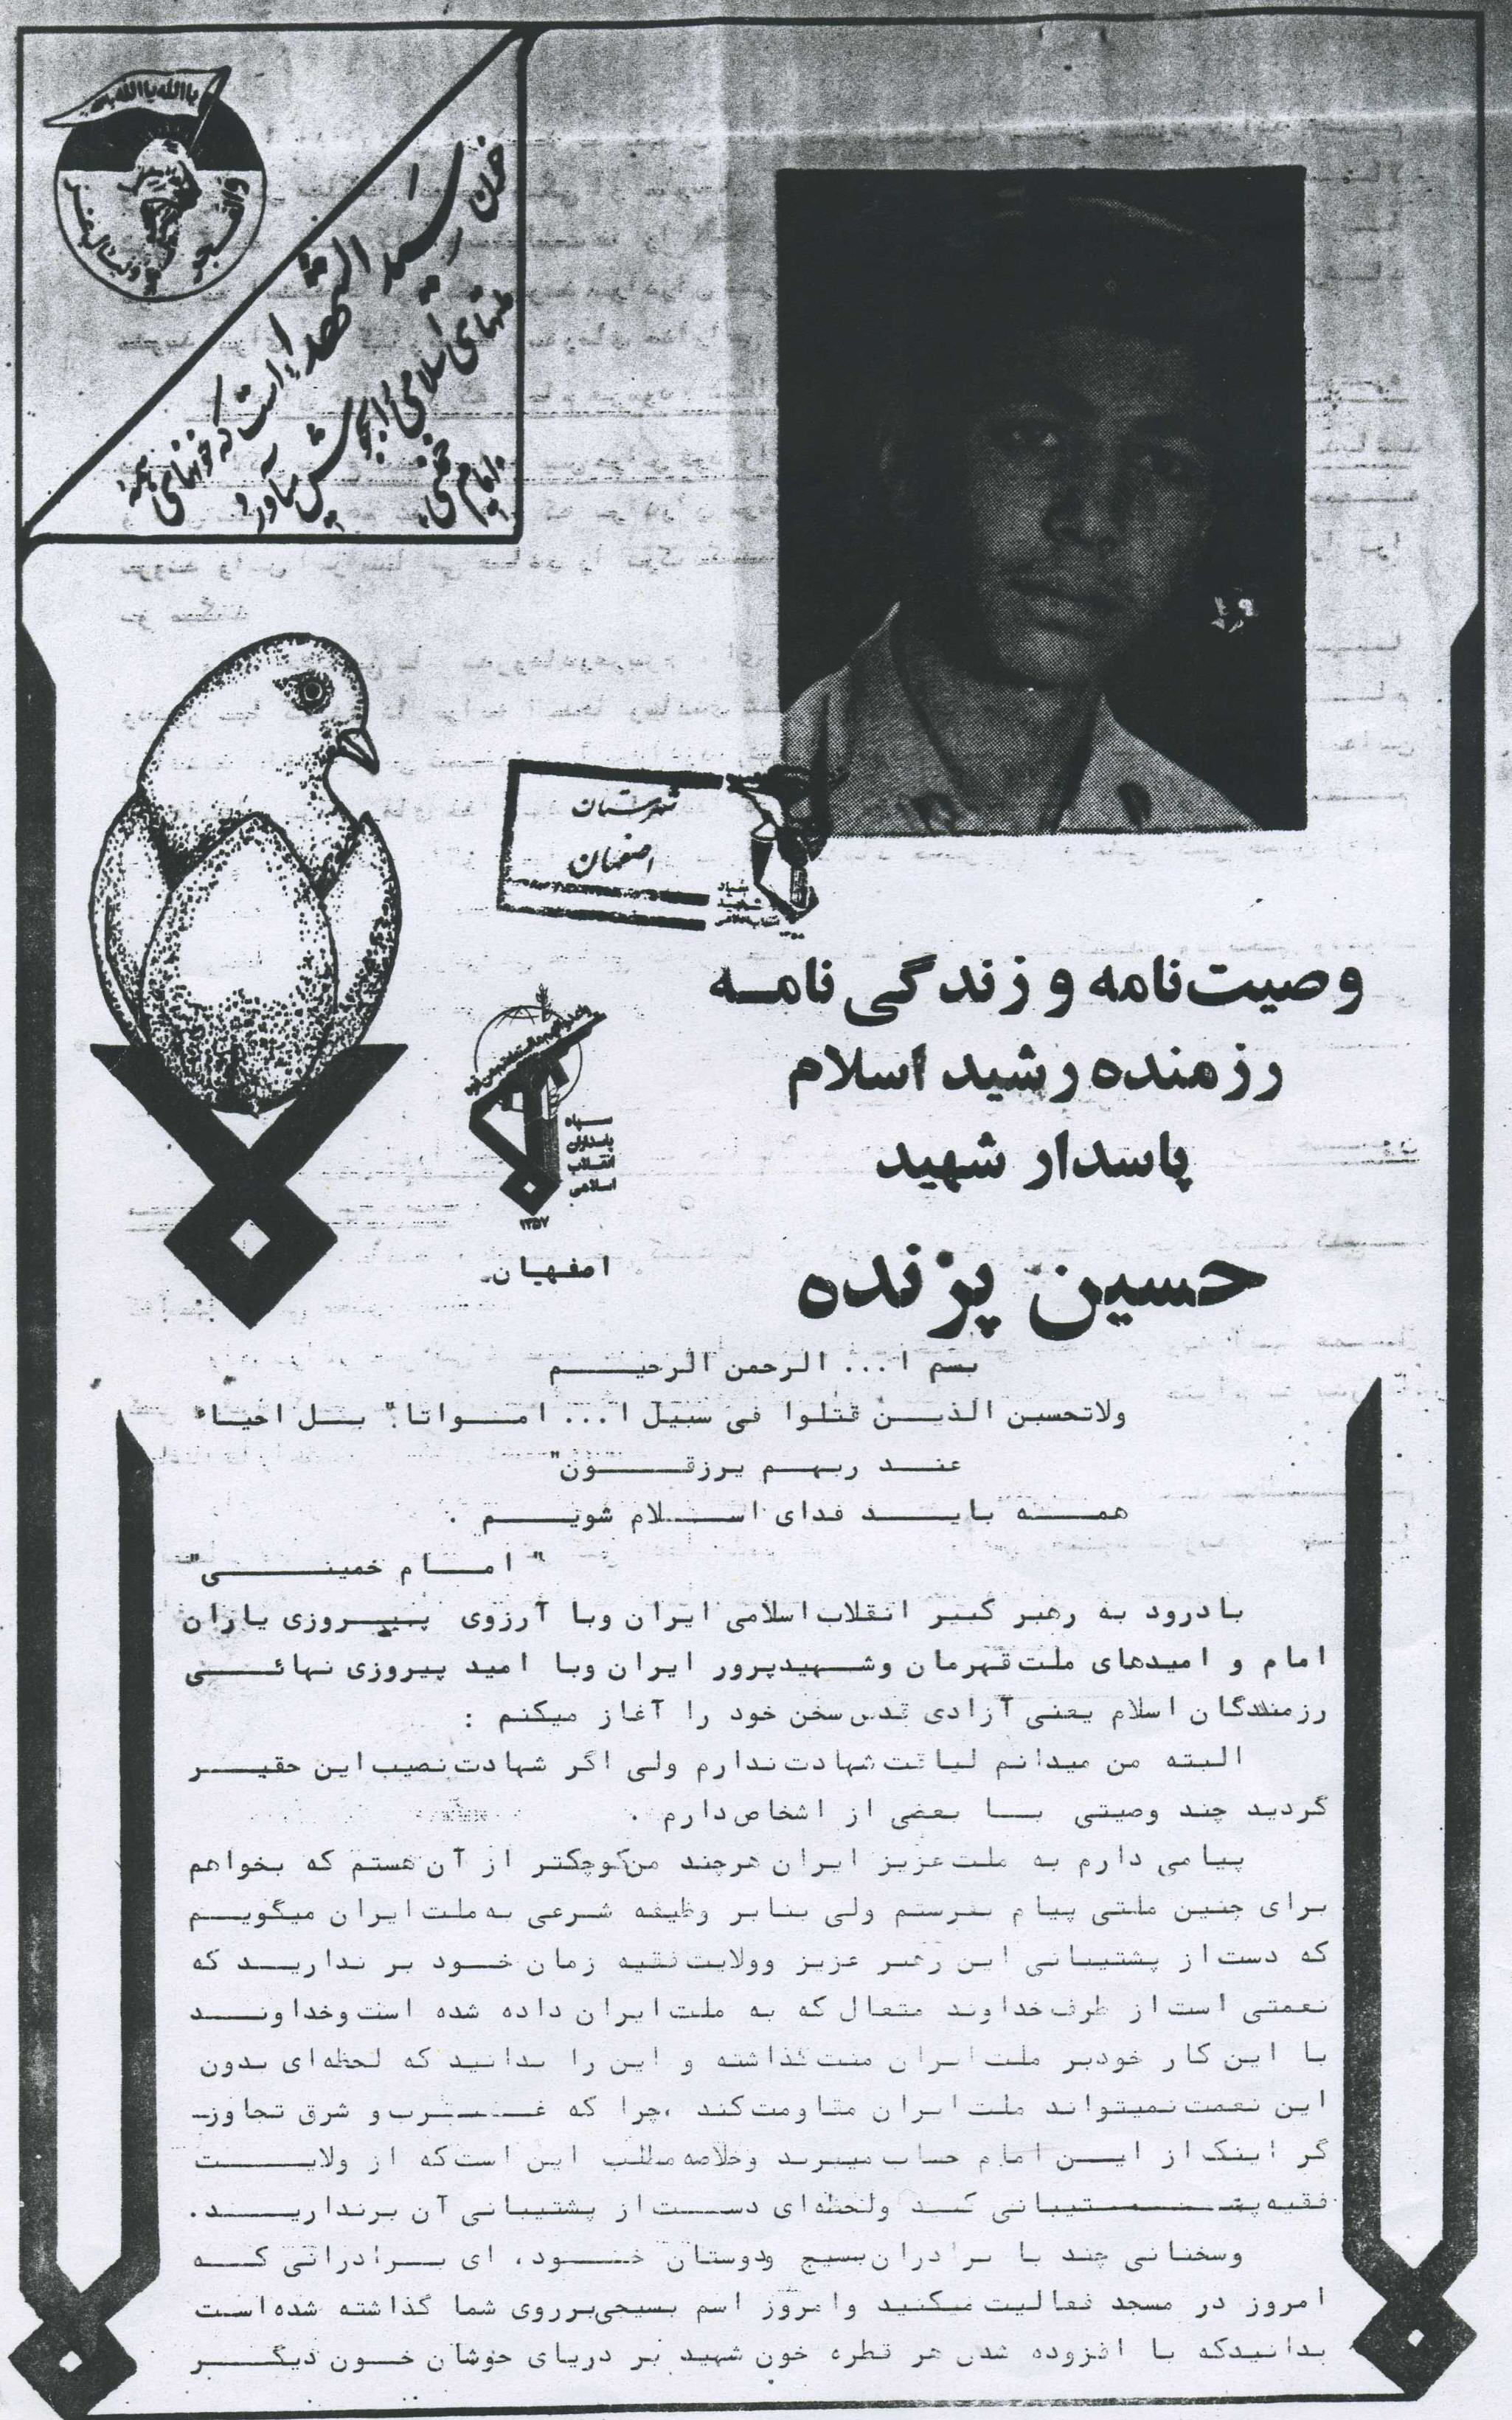 یاالله یاالله
والفجر
ولیال عشر
خون سیدالشهداء است که خونهای همه
ملتهای اسلامی را بجوش میآورد
پیام امام خمینی
شهرستان
اصفهان
بنیاد
شهید
انقلاب اسلامی
وصیت‌نامه و زندگی نامه
رزمنده رشید اسلام
پاسدار شهید
حسین پزنده
سپاه
پاسداران
انقلاب
اسلامی
۱۳۵۷
اصفهان
بسم ا... الرحمن الرحیم
ولاتحسبن الذین قتلوا فی سبیل ا... امواتا" بل احیاء
عند ربهم یرزقون"
همه باید فدای اسلام شویم .
" امام خمینی"
بادرود به رهبر کبیر انقلاب اسلامی ایران وبا آرزوی پیروزی یاران
امام و امیدهای ملت قهرمان وشهیدپرور ایران وبا امید پیروزی نهائی
رزمندگان اسلام یعنی آزادی قدس سخن خود را آغاز میکنم :
البته من میدانم لیاقت شهادت ندارم ولی اگر شهادت نصیب این حقیر
گردید چند وصیتی با بعضی از اشخاص دارم .
پیامی دارم به ملت عزیز ایران هرچند من کوچکتر از آن هستم که بخواهم
برای چنین ملتی پیام بفرستم ولی بنابر وظیفه شرعی به ملت ایران میگویم
که دست از پشتیبانی این رهبر عزیز وولایت فقیه زمان خود بر ندارید که
نعمتی است از طرف خداوند متعال که به ملت ایران داده شده است وخداوند
با این کار خودبر ملت ایران منت گذاشته و این را بدانید که لحظه‌ای بدون
این نعمت نمیتواند ملت ایران مقاومت کند ،چرا که غرب و شرق تجاوز-
گر اینک از این امام حساب میبرند وخلاصه مطلب این است که از ولایت
فقیه پشتیبانی کنید ولحظه‌ای دست از پشتیبانی آن برندارید.
وسخنانی چند با برادران بسیج ودوستان خود، ای برادرانی که
امروز در مسجد فعالیت میکنید وامروز اسم بسیجی برروی شما گذاشته شده است
بدانیدکه با افزوده شدن هر قطره خون شهید بر دریای خوشان خون دیگر